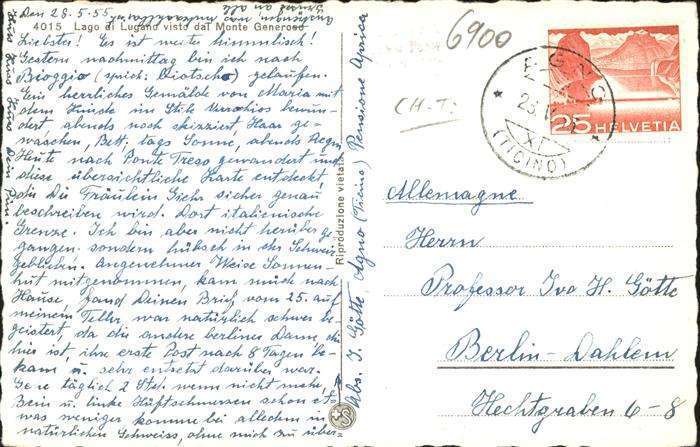 Den 28.5.55.
4015 Lago di Lugano visto dal Monte Generoso
Liebster! Es ist weiter himmlisch!
Gestern nachmittag bin ich nach
Bioggio (sprich: Diotscho) gelaufen.
Ein herrliches Gemälde von Maria mit
dem Kinde im Stile bewun-
dert, abends noch skizziert, Haar ge-
waschen, Bett, tags Sonne, abends Regen
Heute nach Ponte Tresa gewandert und
diese übersichtliche Karte entdeckt
die Dir Fräulein sicher genau
beschreiben wird. Dort italienische
Grenze. Ich bin aber nicht herüber ge
gangen sondern hübsch in der Schweiz
geblieben. Angenehmer Weise Sonnen-
hut mitgenommen, kam müde nach
Hause, fand Deinen Brief vom 25. auf
meinem Teller, war natürlich schwer be
geistert, da die andere berliner Dame, die
hier ist, ihre erste Post nach 8 Tagen be-
kam u. sehr entsetzt darüber war.
Gehe täglich 2 Std. wenn nicht mehr,
Bein u. linke Hüftschmerzen schon et-
was weniger komme bei alledem in
natürlichen Schweiss, ohne mich zu über-
Riproduzione vietata
Abs. I. Götte, Agno (Ticino) Pensione Aprica
6900
CH.T.
AGNO
(TICINO)
25 HELVETIA
Allemagne
Herrn
Professor Ivo H. Götte
Berlin-Dahlem
Hechtgraben 6-8